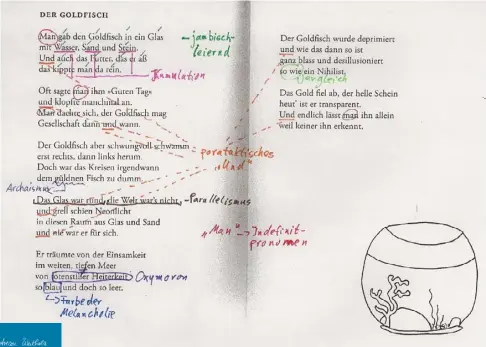 DER GOLDFISCH
Man gab den Goldfisch in ein Glas
mit Wasser, Sand und Stein.
Und auch das Futter, das er aß
das kippte man da rein.
Oft sagte man ihm »Guten Tag«
und klopfte manchmal an.
Man dachte sich, der Goldfisch mag
Gesellschaft dann und wann.
Der Goldfisch aber schwungvoll schwamm
erst rechts, dann links herum.
Doch war das Kreisen irgendwann
dem güldnen Fisch zu dumm.
Das Glas war rund, die Welt war's nicht,
und grell schien Neonlicht
in diesen Raum aus Glas und Sand
und nie war er für sich.
Er träumte von der Einsamkeit
im weiten, tiefen Meer
von totenstiller Heiterkeit
so blau und doch so leer.
Der Goldfisch wurde deprimiert
und wie das dann so ist
ganz blass und desillusioniert
so wie ein Nihilist.
Das Gold fiel ab, der helle Schein
heut' ist er transparent.
Und endlich lässt man ihn allein
weil keiner ihn erkennt.
-jambisch-
leiernd
Kumulation
parataktisches
"Und"
Vergleich
Archaismus
-Parallelismus
"Man" -> Indefinit-
pronomen
Oxymoron
Farbe der
Melancholie